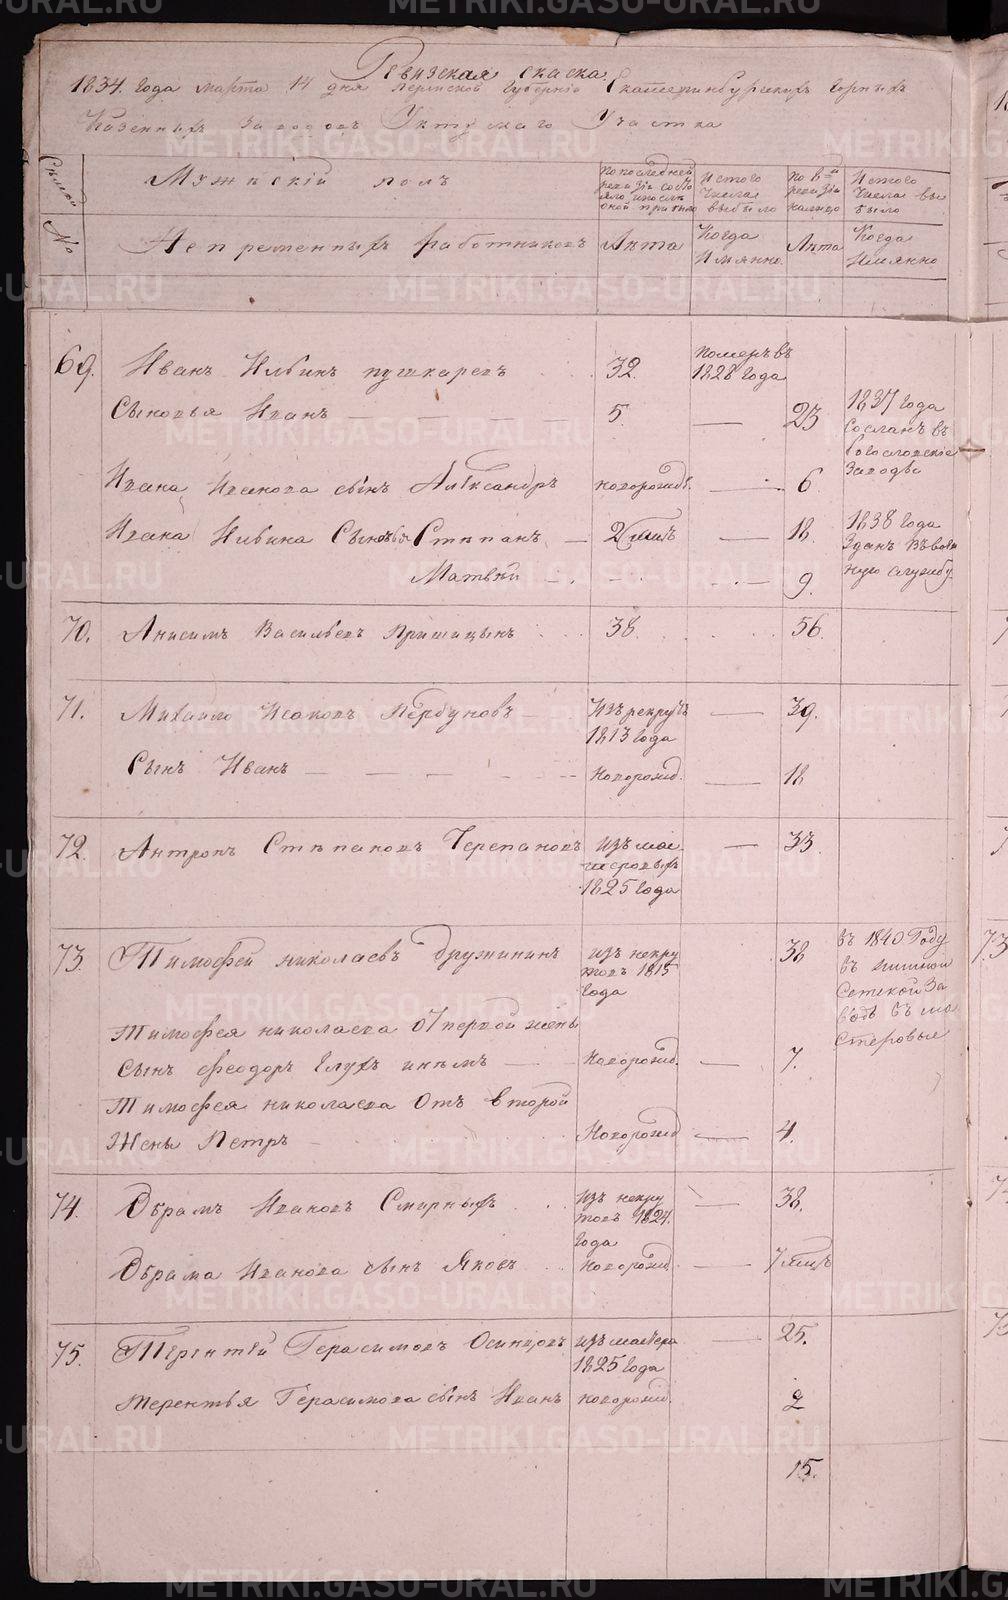 Ревизская скаска
1834. Года марта 14 дня Пермской Губернiи Екатеринбургскихъ Горныхъ
Казенныхъ Заводовъ Уктускаго Участка
Семей
№
Мужескiй полъ
Непременныхъ работниковъ
По последней
ревизiи состо
яло и после
оной прибыло
Лѣта
Изтого
числа
выбыло
Когда
Имянно.
По 8й
ревизiи
налицо
Лѣта
Изтого
числа вы
было
Когда
Имянно
69. Иванъ Ильинъ пушкаревъ 32. померъ въ
1828 года
Сыновья Иванъ 5. 23 1837 года
Сосланъ въ
Богословскiе
Заводы
Ивана Иванова сынъ Александръ новорожд. 6
Ивана Ильина Сыновья Степанъ 2 18. 1838 года
Зданъ въ
службу
Матвѣй 9.
70. Анисимъ Васильевъ 38. 56.
71. Михаило Исаковъ Изъ рекрутъ 39.
1813 года
Сынъ Иванъ новорожд. 18
72. Антропъ Степановъ Черепановъ Изъ мас 33.
теровыхъ
1825 года
73. Тимофей николаевъ дружининъ изъ некру 38 въ 1840 Году
товъ 1815
года
въ
Сетской За
водъ въ ма
стеровые
Тимофея николаева отпервой жены
Сынъ Феодоръ новорожд. 7.
Тимофея николаева Отъ второй
Жены Петръ Новорожд 4.
74. Обрамъ Ивановъ Смирныхъ Изъ некру 38.
товъ 1824.
года
Обрама Иванова сынъ Яковъ новорожд. 7
75. Терентей Герасимовъ Осинцовъ изъ 25.
1825 года
терентья Герасимова сынъ Иванъ новорожд. 2
15.
METRIKI.GASO-URAL.RU